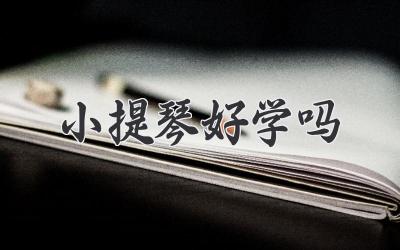 小提琴好学吗